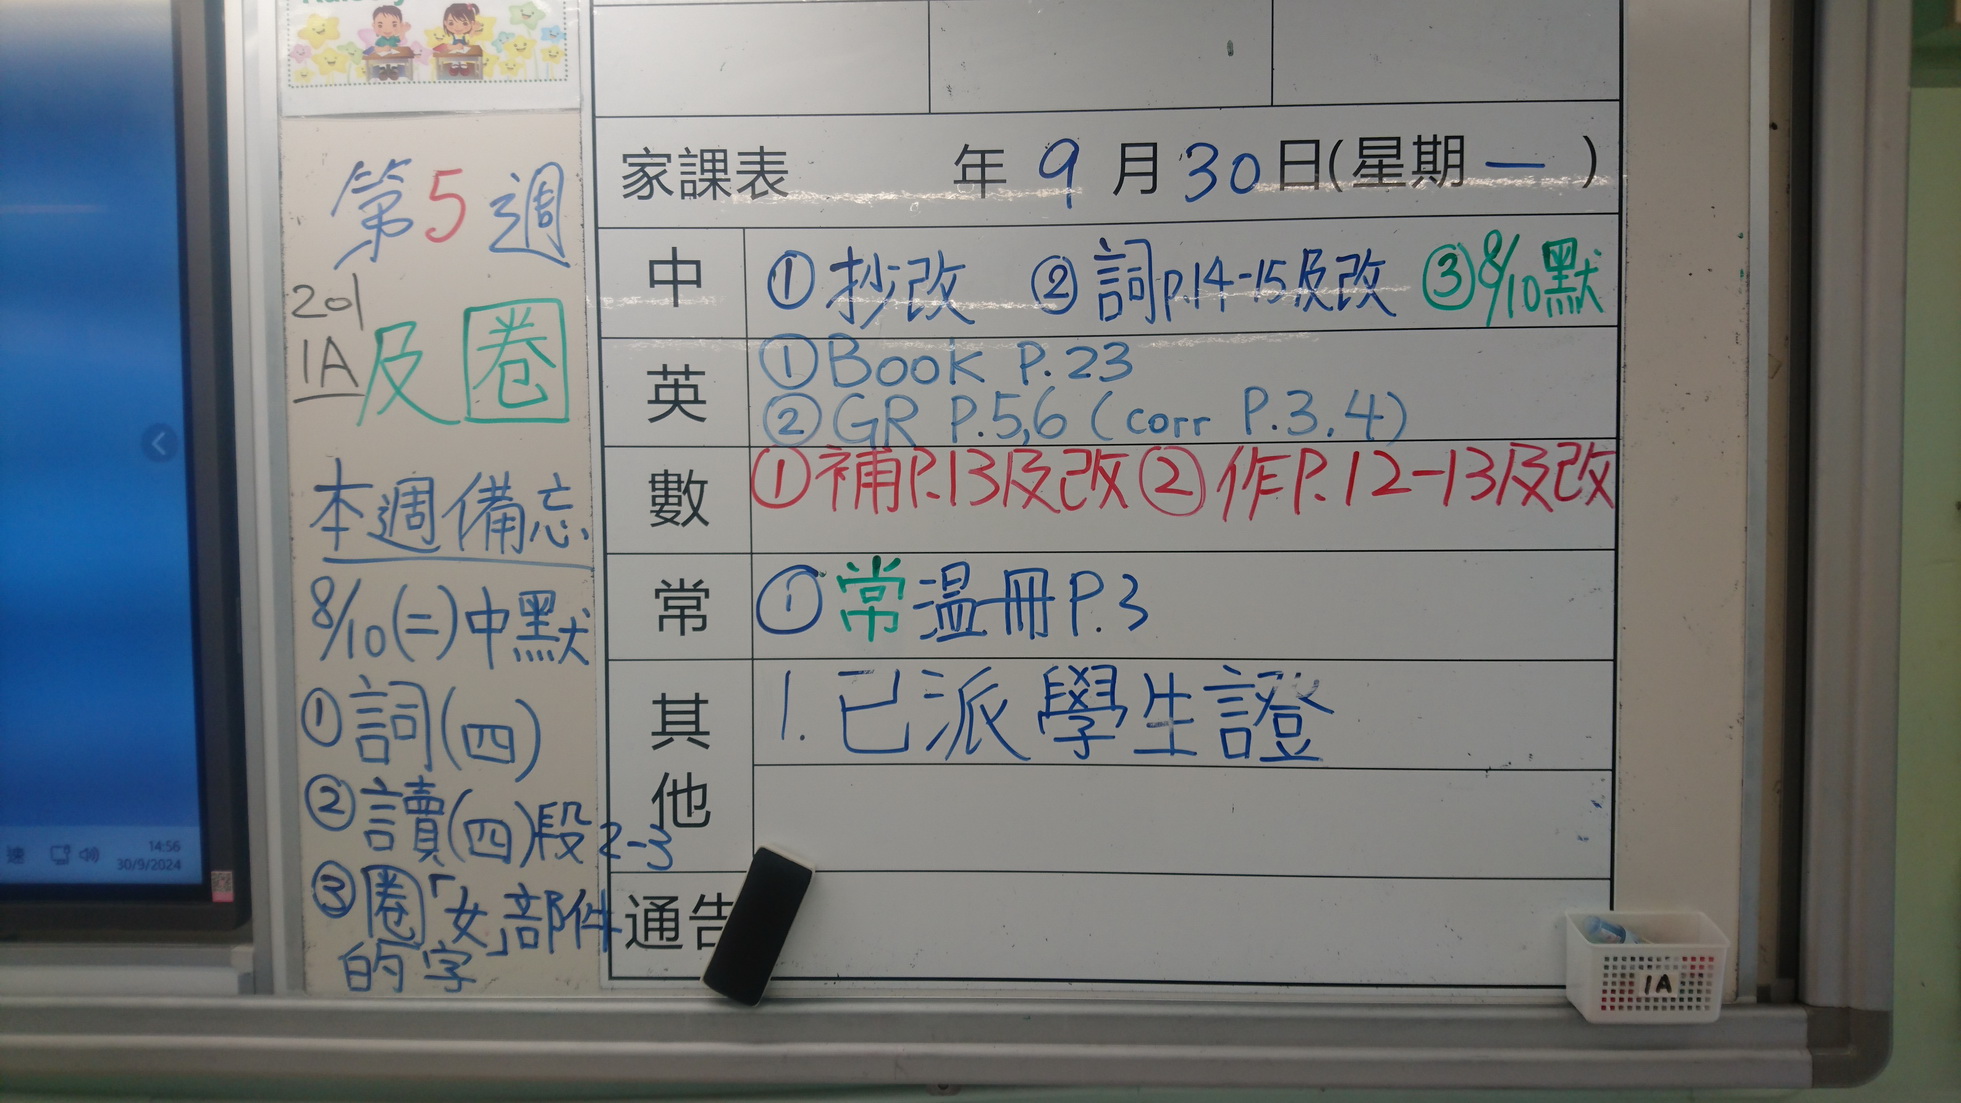 第5週
201
1A
及圈
本週備忘
8/10(二)中默
①詞(四)
②讀(四)段2-3
③圈「女」部件
的字
家課表 年9月30日(星期一)
中 ①抄改 ②詞p.14-15及改 ③8/10默
英 ①Book P.23
②GR P.5,6 (corr P.3,4)
數 ①補P.13及改②作P.12-13及改
常 ①常溫冊P.3
其他 1.已派學生證
通告
速 14:56
30/9/2024
1A